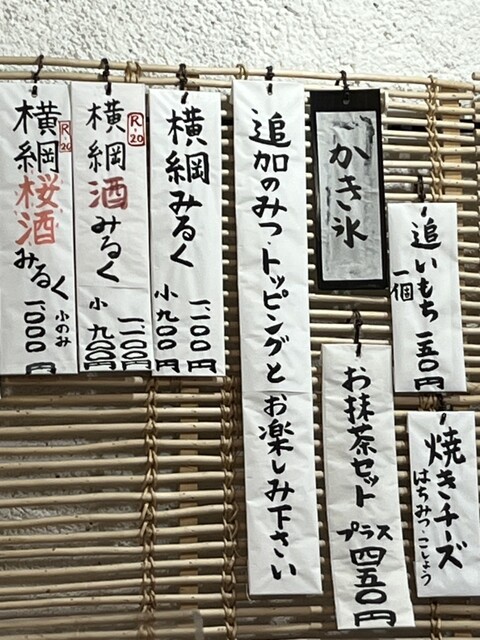 かき氷
追いもち 一五〇円
一個
焼きチーズ
はちみつ・こしょう
お抹茶セット プラス四五〇円
追加のみつ・トッピングとお楽しみ下さい
横綱みるく 一、一〇〇円
小 九〇〇円
R-20
横綱酒みるく 一、一〇〇円
小 九〇〇円
R-20
横綱桜酒みるく 小のみ
一、〇〇〇円